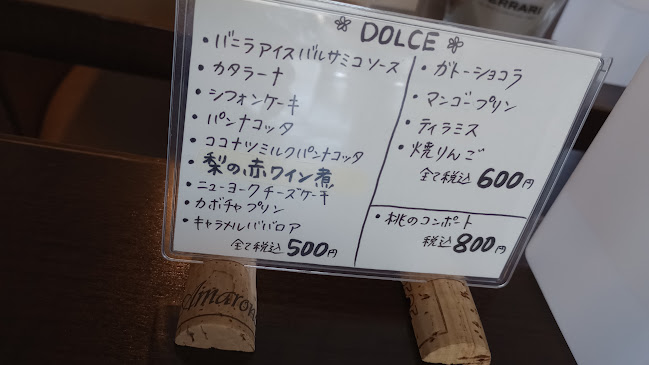 ERRARI
DOLCE
・バニラアイスバルサミコソース
・カタラーナ
・シフォンケーキ
・パンナコッタ
・ココナツミルクパンナコッタ
・梨の赤ワイン煮
・ニューヨークチーズケーキ
・カボチャプリン
・キャラメルババロア
全て税込500円
・ガトーショコラ
・マンゴープリン
・ティラミス
・焼りんご
全て税込600円
・桃のコンポート
税込800円